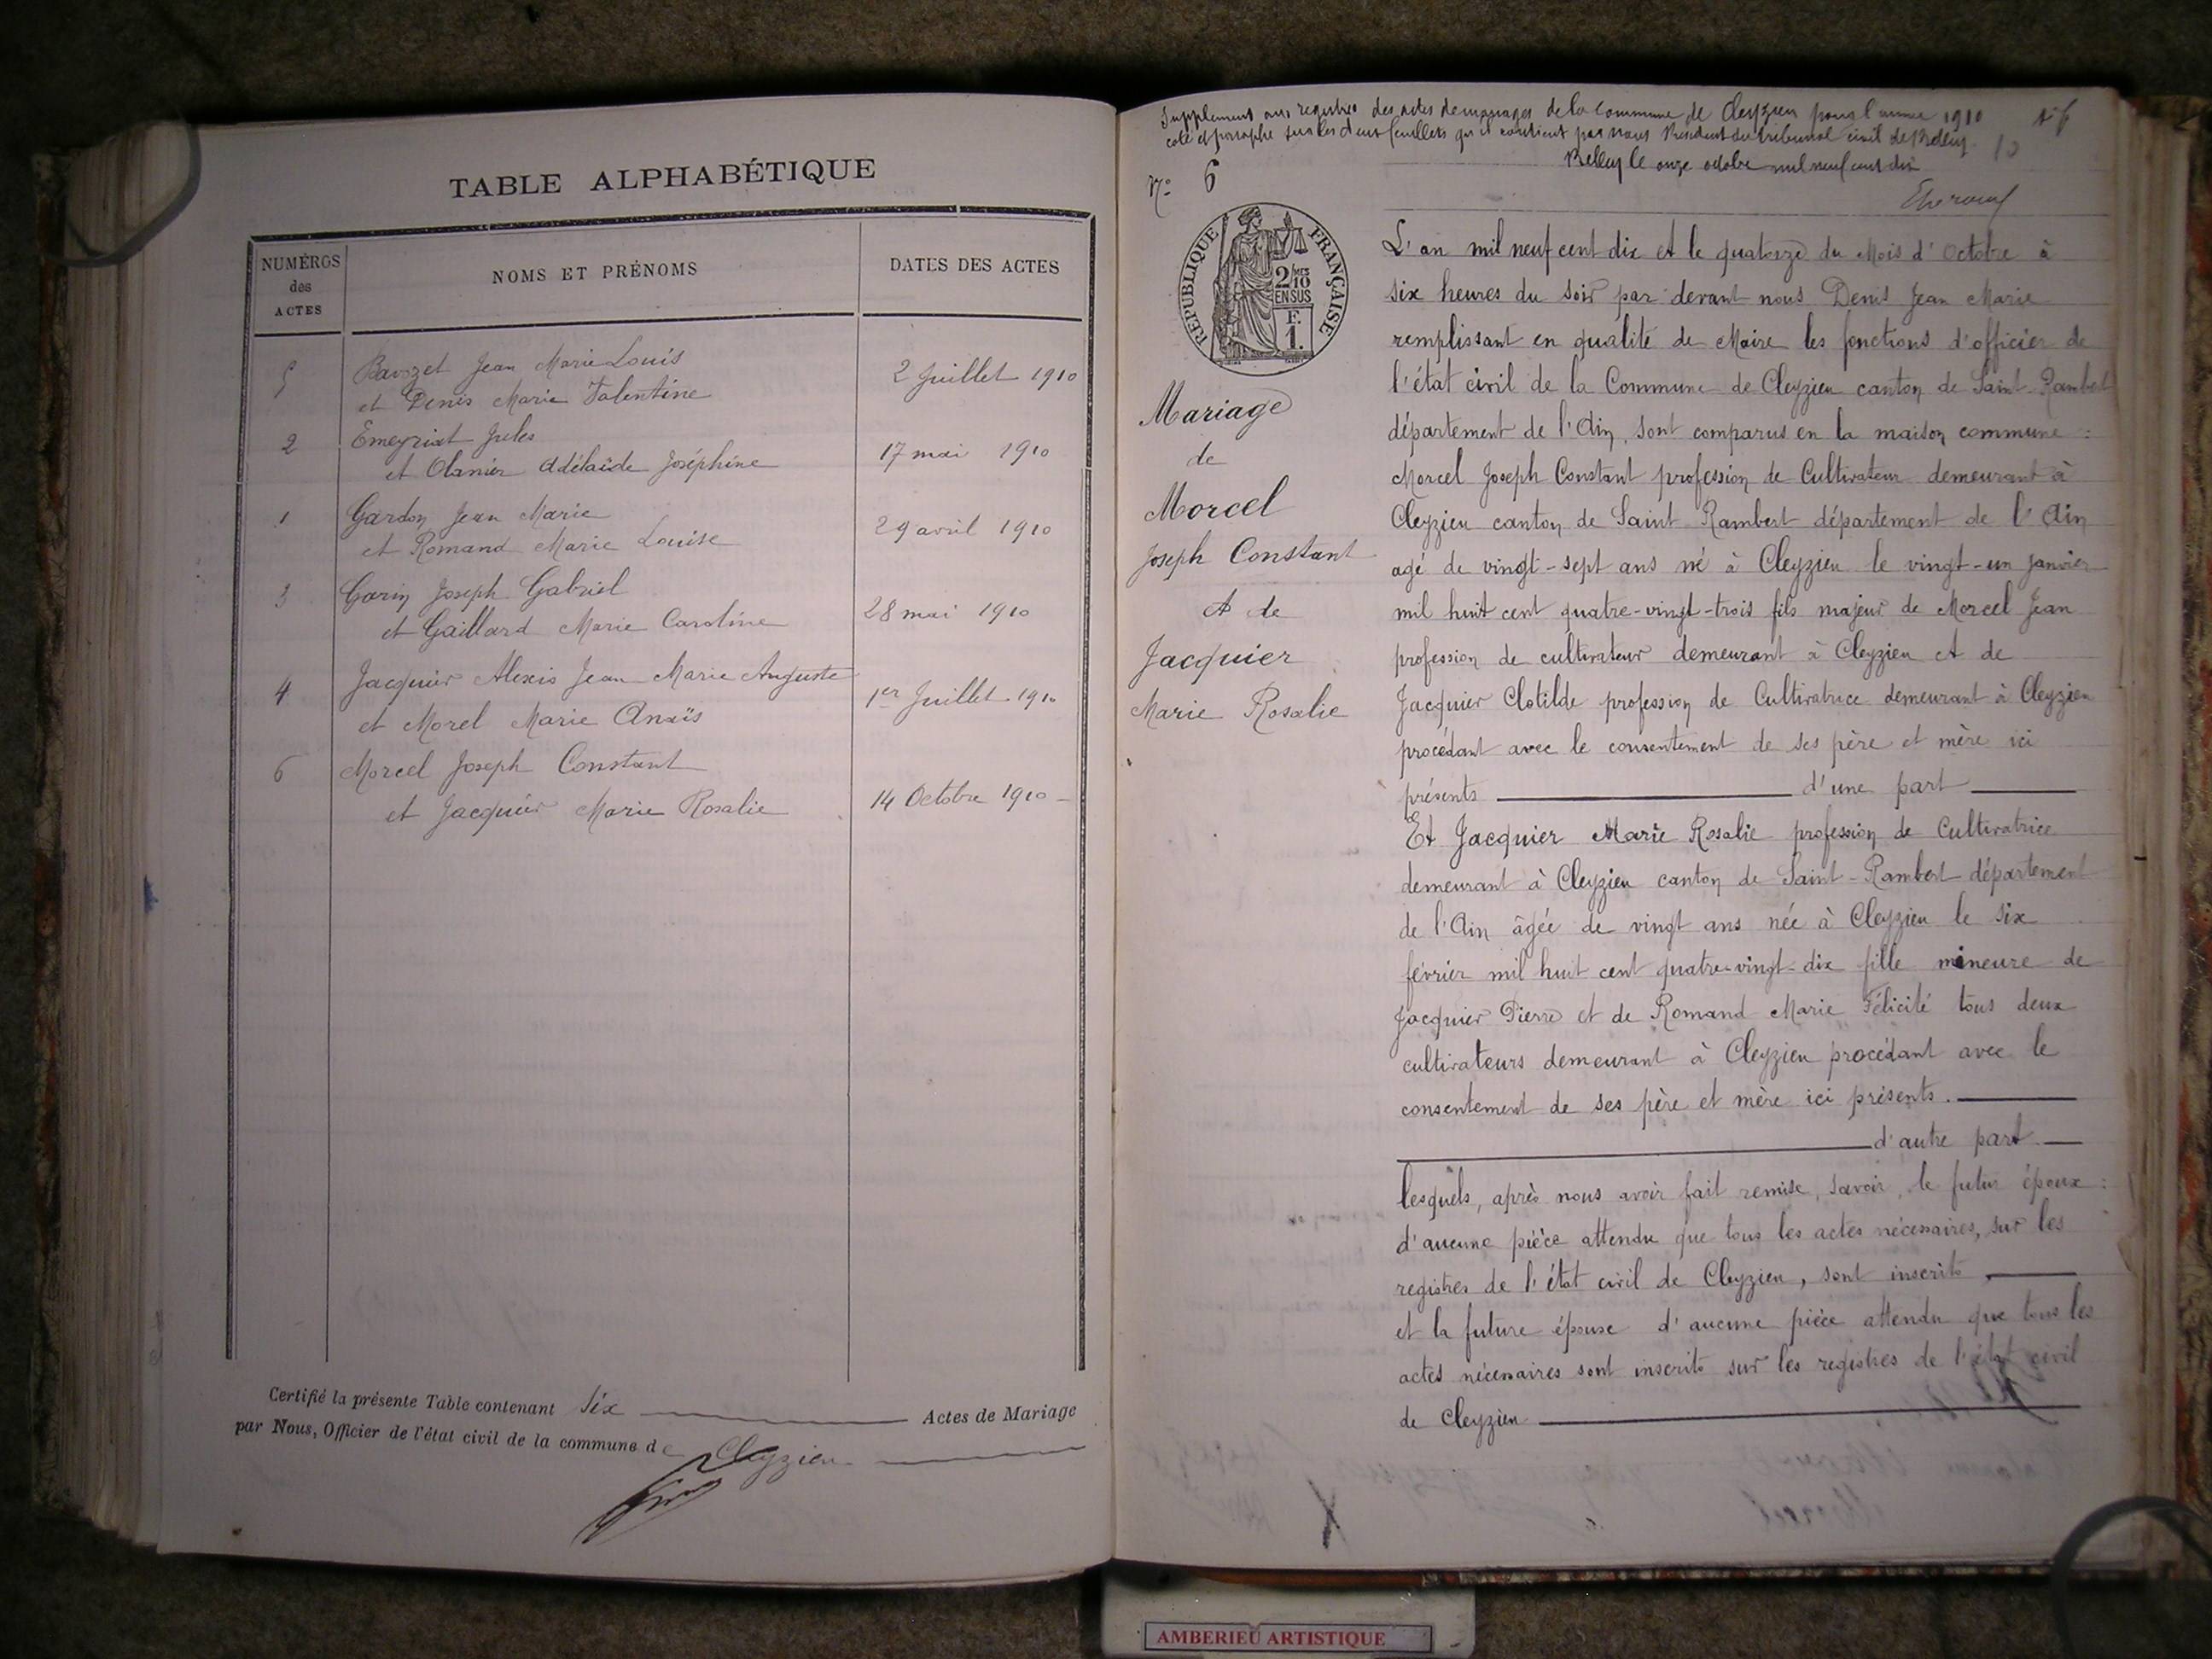 TABLE ALPHABÉTIQUE
NUMÉROS des ACTES
NOMS ET PRÉNOMS
DATES DES ACTES
5 Bavozet Jean Marie Louis
et Denis Marie Valentine 2 Juillet 1910
2 Emeyriat Jules
et Olanier Adélaïde Joséphine 17 mai 1910
1 Gardon Jean Marie
et Romand Marie Louise 29 avril 1910
3 Garin Joseph Gabriel
et Gaillard Marie Caroline 28 mai 1910
4 Jacquier Alexis Jean Marie Auguste
et Morel Marie Anaïs 1er Juillet 1910
6 Morcel Joseph Constant
et Jacquier Marie Rosalie 14 Octobre 1910
Certifié la présente Table contenant Six Actes de Mariage
par Nous, Officier de l'état civil de la commune de Cleyzieu
Supplément aux registres des actes de mariages de la Commune de Cleyzieu pour l'année 1910
coté et paraphé sur les deux feuillets qu'il contient par nous Président du tribunal civil de Belley
Belley le onze octobre mil neuf cent dix
N° 6
RÉPUBLIQUE FRANÇAISE
2/10 EN SUS
F. 1.
Mariage
de
Morcel
Joseph Constant
et de
Jacquier
Marie Rosalie
L'an mil neuf cent dix et le quatorze du Mois d'Octobre à
six heures du soir par devant nous Denis Jean Marie
remplissant en qualité de Maire les fonctions d'officier de
l'état civil de la Commune de Cleyzieu canton de Saint-Rambert
département de l'Ain, sont comparus en la maison commune :
Morcel Joseph Constant profession de Cultivateur demeurant à
Cleyzieu canton de Saint Rambert département de l'Ain
agé de vingt-sept ans né à Cleyzieu le vingt-un janvier
mil huit cent quatre-vingt-trois fils majeur de Morcel Jean
profession de cultivateur demeurant à Cleyzieu et de
Jacquier Clotilde profession de Cultivatrice demeurant à Cleyzieu
procédant avec le consentement de ses père et mère ici
présents d'une part
Et Jacquier Marie Rosalie profession de Cultivatrice
demeurant à Cleyzieu canton de Saint-Rambert département
de l'Ain âgée de vingt ans née à Cleyzieu le six
février mil huit cent quatre-vingt-dix fille mineure de
Jacquier Pierre et de Romand Marie Félicité tous deux
cultivateurs demeurant à Cleyzieu procédant avec le
consentement de ses père et mère ici présents.
d'autre part
lesquels, après nous avoir fait remise, savoir, le futur époux :
d'aucune pièce attendu que tous les actes nécessaires, sur les
registres de l'état civil de Cleyzieu, sont inscrits,
et la future épouse d'aucune pièce attendu que tous les
actes nécessaires sont inscrits sur les registres de l'état civil
de Cleyzieu
AMBERIEU ARTISTIQUE